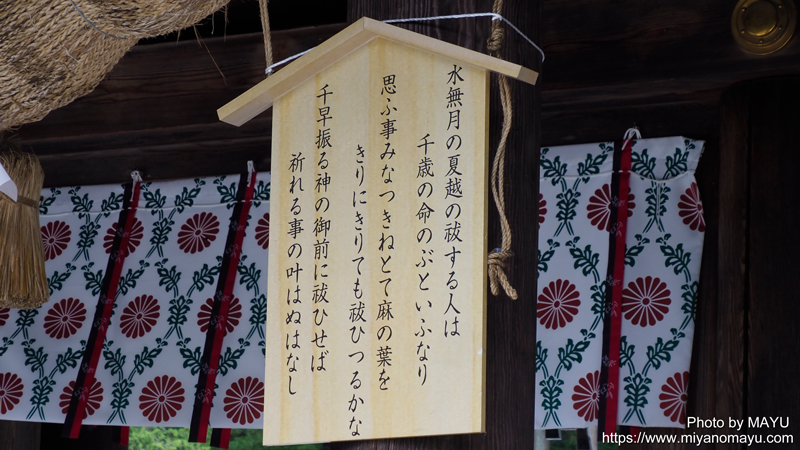 水無月の夏越の祓する人は
千歳の命のぶといふなり
思ふ事みなつきねとて麻の葉を
きりにきりても祓ひつるかな
千早振る神の御前に祓ひせば
祈れる事の叶はぬはなし
Photo by MAYU
https://www.miyanomayu.com/